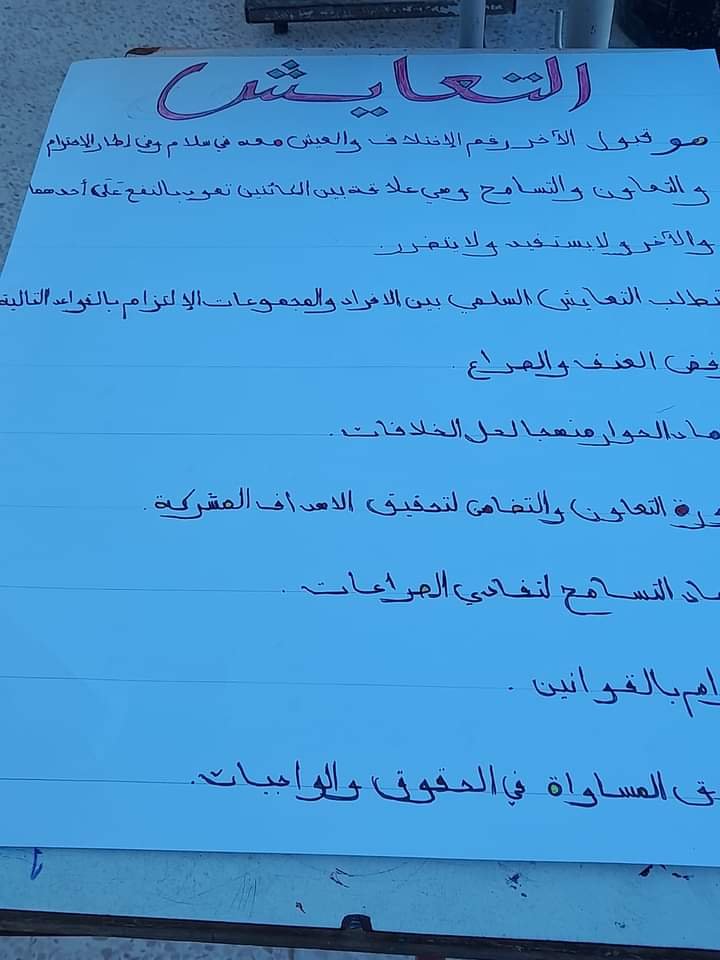 التعايش
هو قبول الآخر رغم الإختلاف والعيش معه في سلام وفي إطار الاحترام
والتعاون والتسامح وهي علاقة بين الكائنين تعود بالنفع عَلَى أحدهما
والآخر ولا يستفيد ولا يتضرر.
تطلب التعايش السلمي بين الافراد والمجموعات الإلتزام بالقواعد التالية
فض العنف والصراع.
ماد الحوار منهجا لحل الخلافات.
ورة التعاون والتضامن لتحقيق الاهداف المشركة.
ماد التسامح لتفادي الصراعات.
رام بالقوانين.
ق المساواة في الحقوق والواجبات.